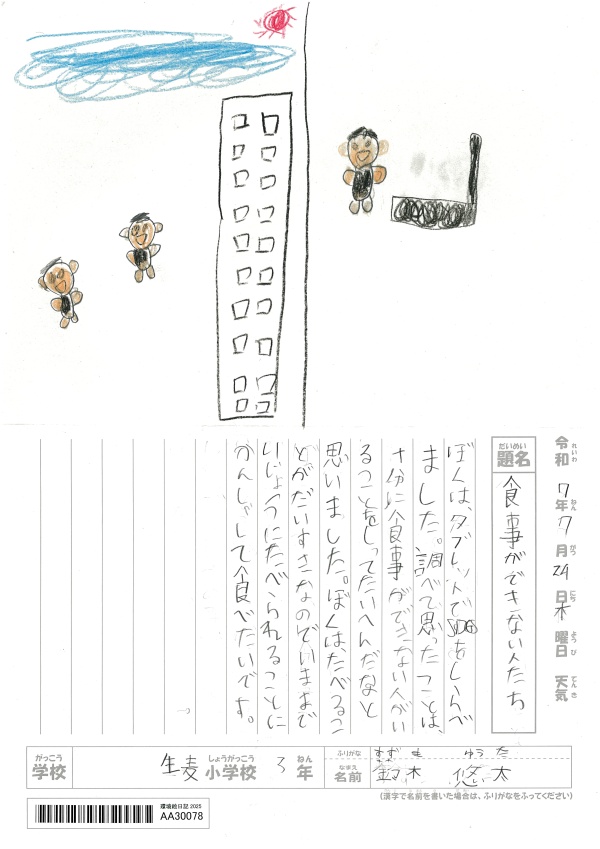 令和7年7月24日木曜日 天気
れいわ ねん がつ にち ようび てんき
だいめい
題名
食事ができない人たち
ぼくは、タブレットでSDGsをしらべ
ました。調べて思ったことは、
十分に食事ができない人がい
ることをしってたいへんだなと
思いました。ぼくは、たべるこ
とがだいすきなのでいままで
かんしゃして食べたいです。
がっこう
学校
生麦
しょうがっこう
小学校
3
ねん
年
ふりがな
すずき ゆうた
なまえ
名前
鈴木 悠太
(漢字で名前を書いた場合は、ふりがなをふってください)
環境絵日記 2025
AA30078